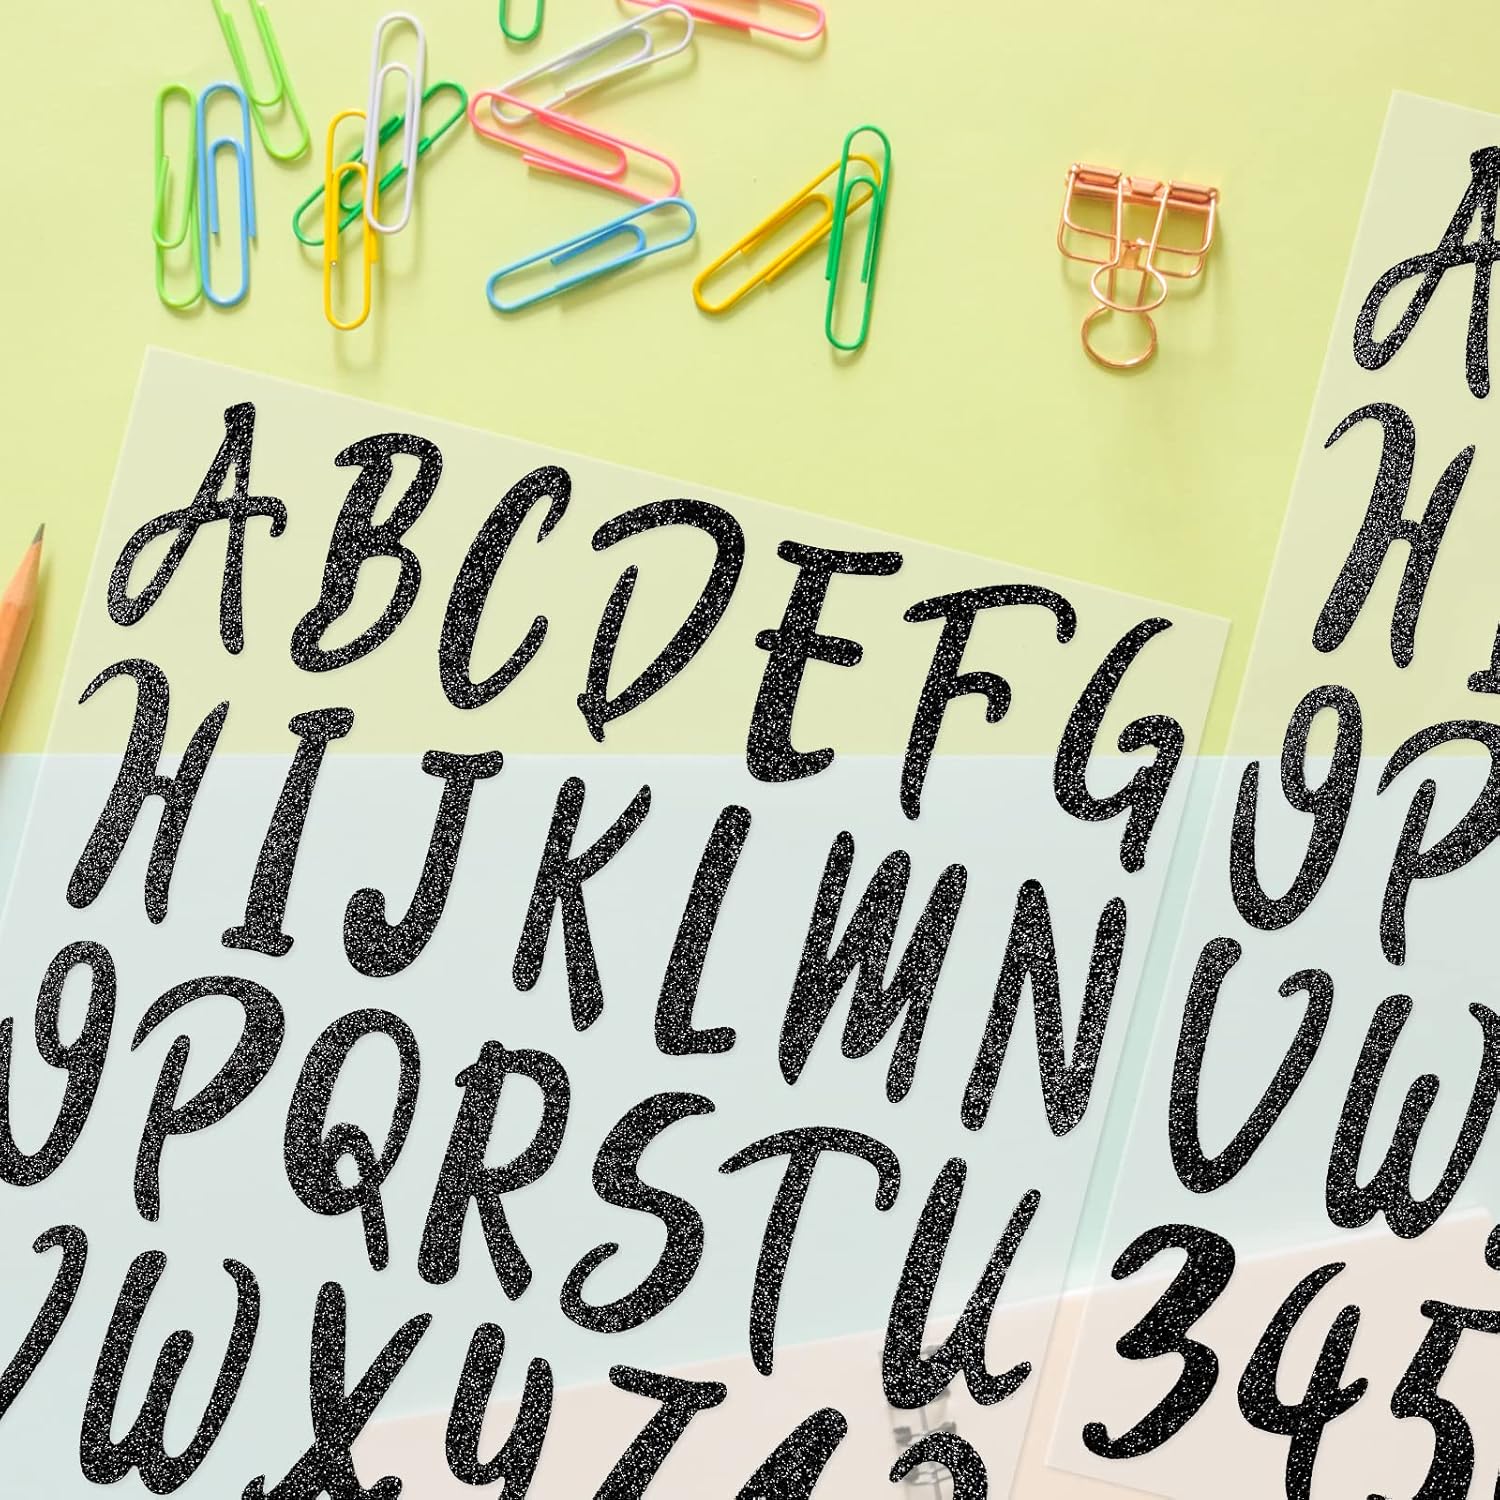 A B C D E F G
H I J K L M N
O P Q R S T U
V W X Y Z 1 2
A
H I
O P
V W
3 4 5